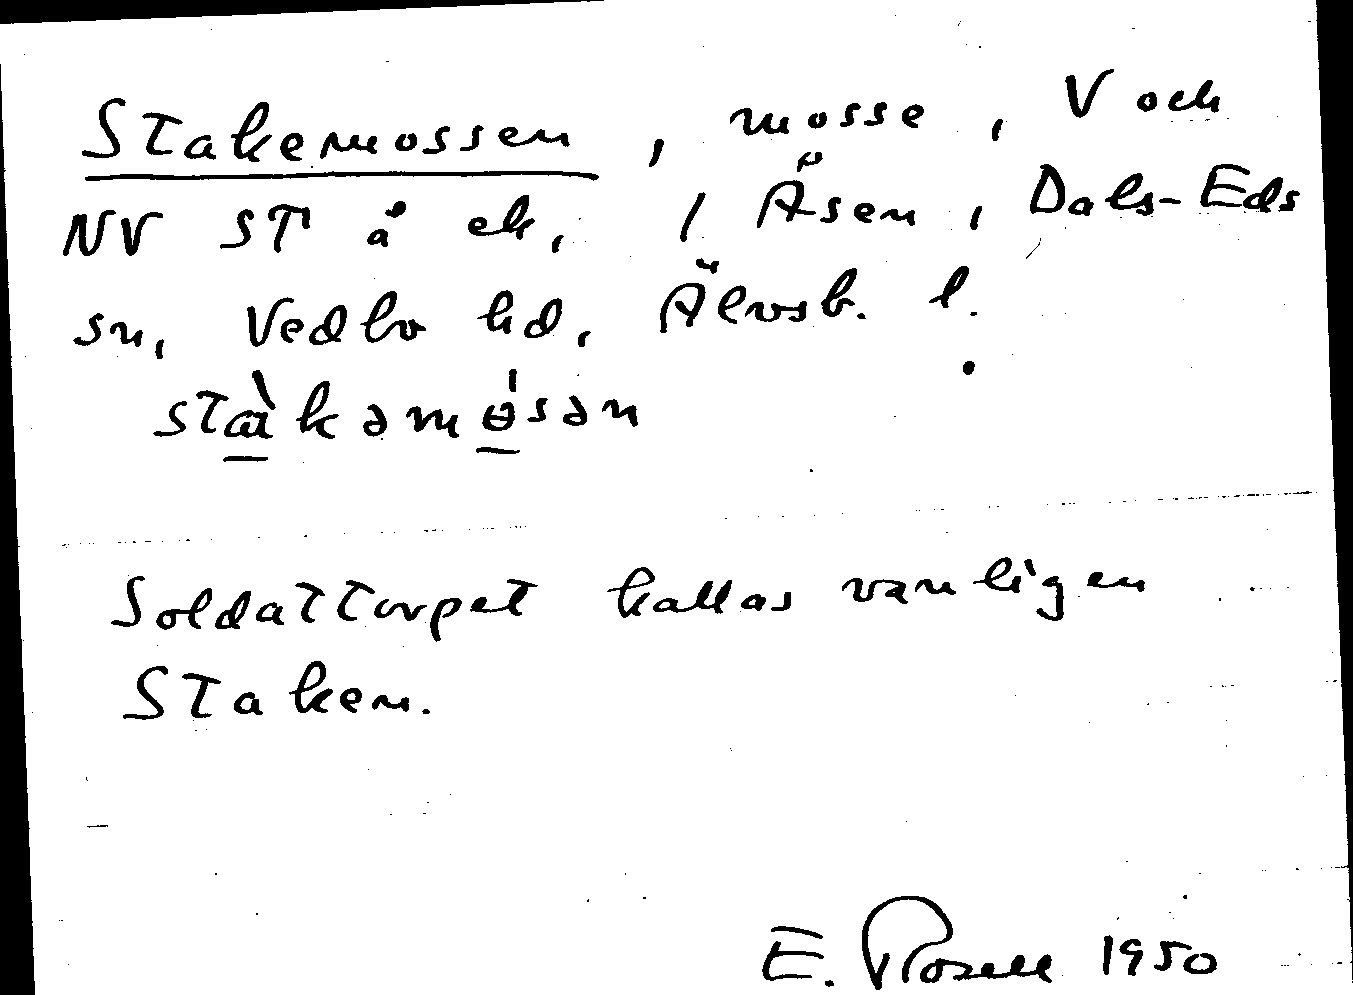 Stakemossen, mosse, V och
NV ST å ek, 1 Åsen, Dals-Eds
sn, Vedbo hd, Älvsb. l.
stàkəmɵ́sən
Soldattorpet kallas vanligen
Staken.
E. Rosell 1950